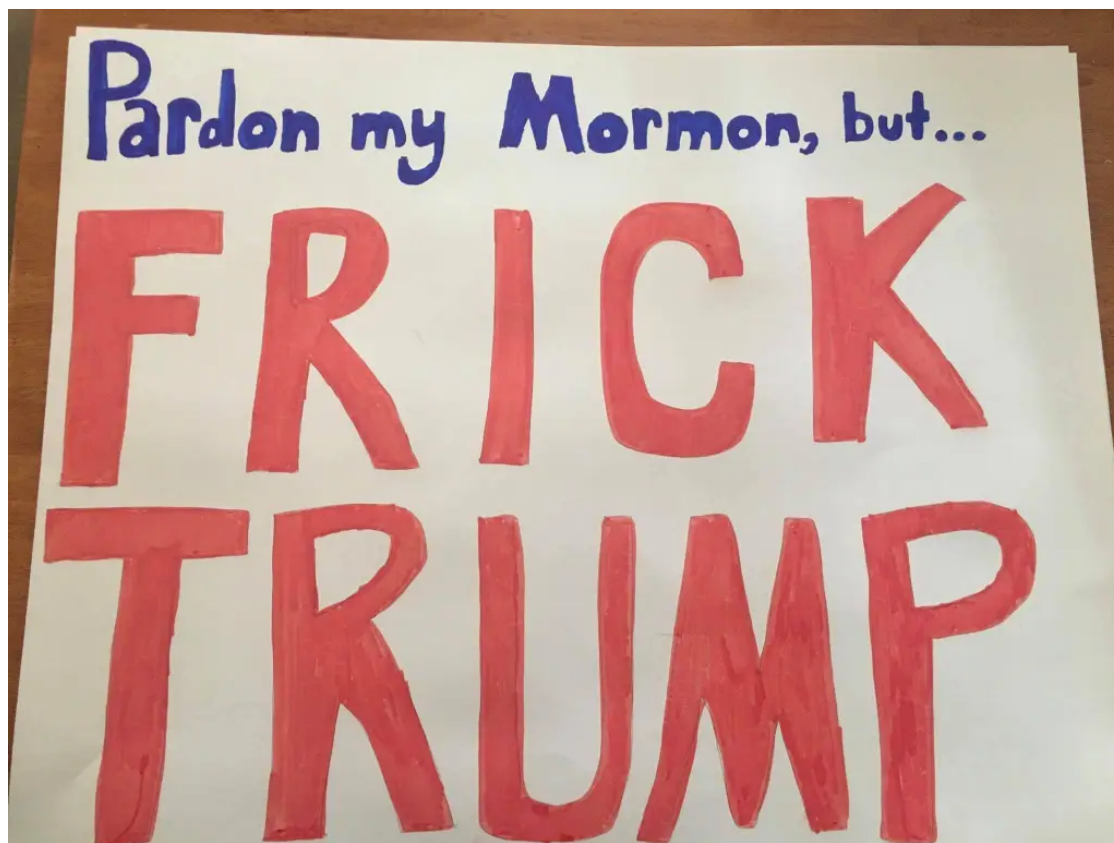 Pardon my Mormon, but...
FRICK
TRUMP